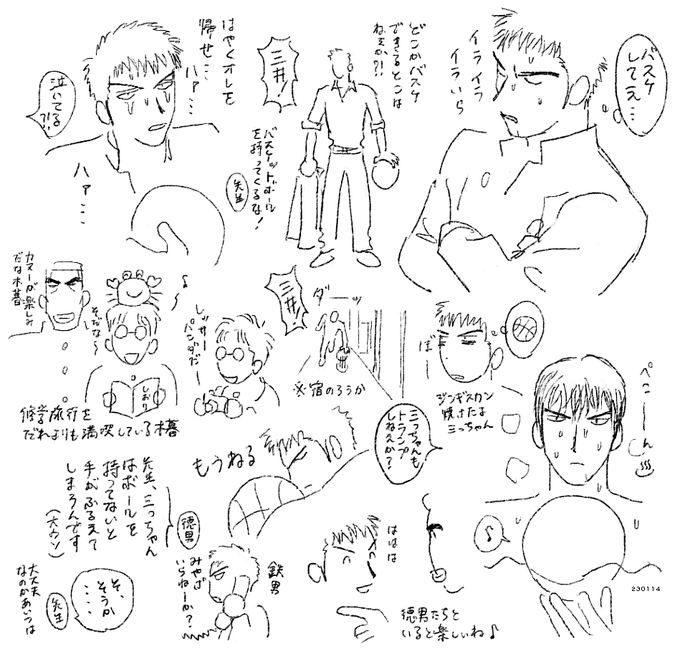 バスケ
してえ…
イライラ
イラいら
どこかバスケ
できるとこは
ねぇか?!
三井!
バスケットボール
を持ってくるな!
先生
はやくオレを
帰せ…
ハァ…
泣いてる
?!
ハァ…
カヌーが楽しみ
だな木暮
そだな〜
しおり
♪
レッサー
パンダだ
修学旅行を
だれよりも満喫している木暮
三井!
ダーーッ
※宿のろうか
ぼー
ジンギスカン
焼けたよ
三っちゃん
三っちゃんも
トランプ
しねえか?
ぺこーーん
♪
もうねる
先生、三っちゃん
はボールを
持ってないと
手がふるえて
しまうんです
(大ウソ)
徳男
そ、
そうか
…
大丈夫
なのかあいつは
先生
鉄男
みやげ
いらねーか?
ははは
徳男たちと
いると楽しいね♪
230114